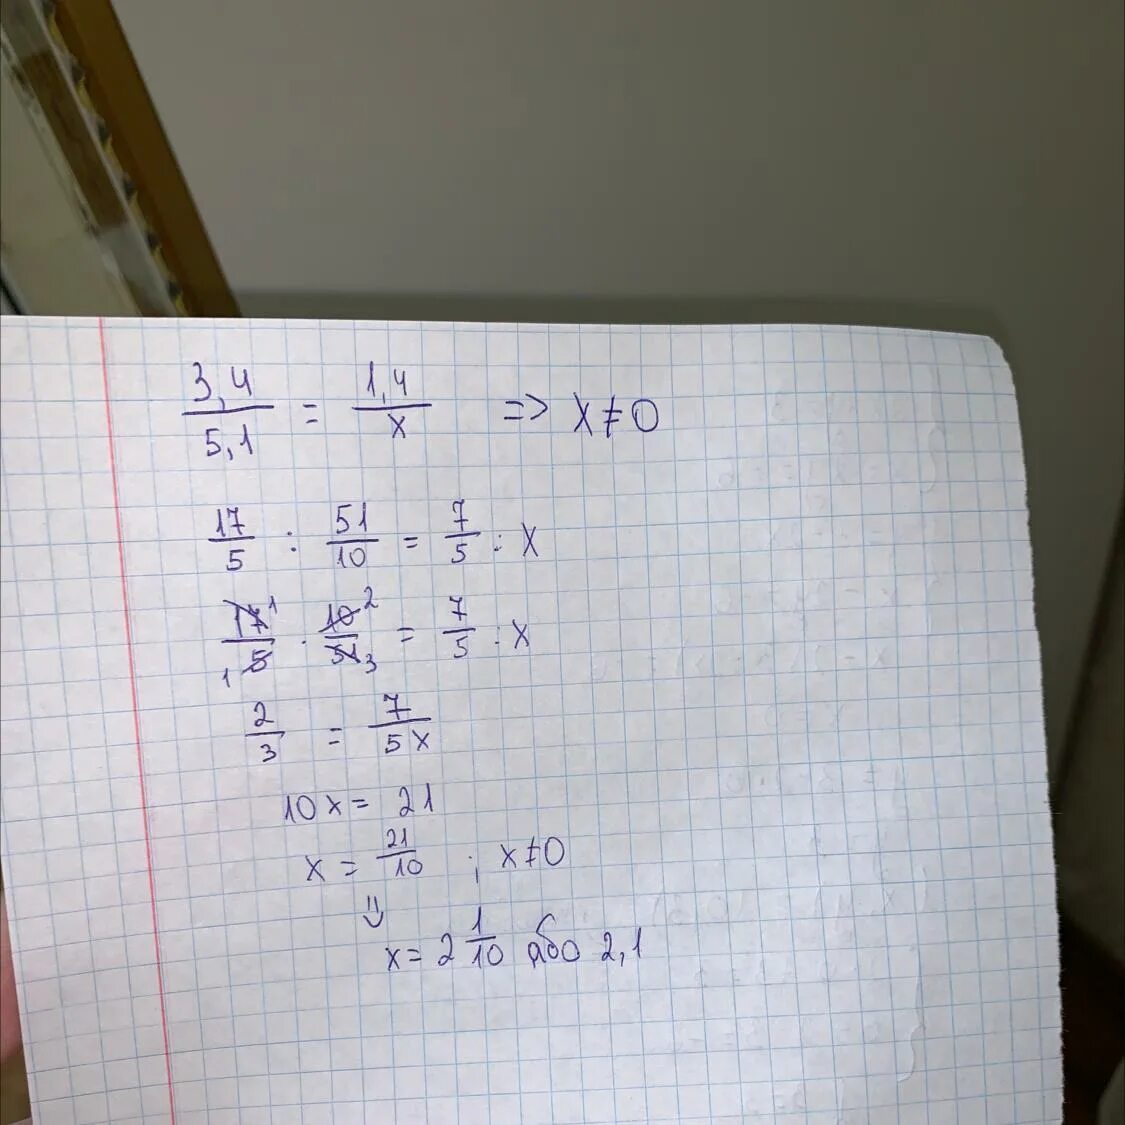 3,4/5,1 = 1,4/x => x≠0
17/5 : 51/10 = 7/5 : x
17 1/1 5 · 10 2/51 3 = 7/5 : x
2/3 = 7/5x
10x = 21
x = 21/10 ; x≠0
x = 2 1/10 або 2,1